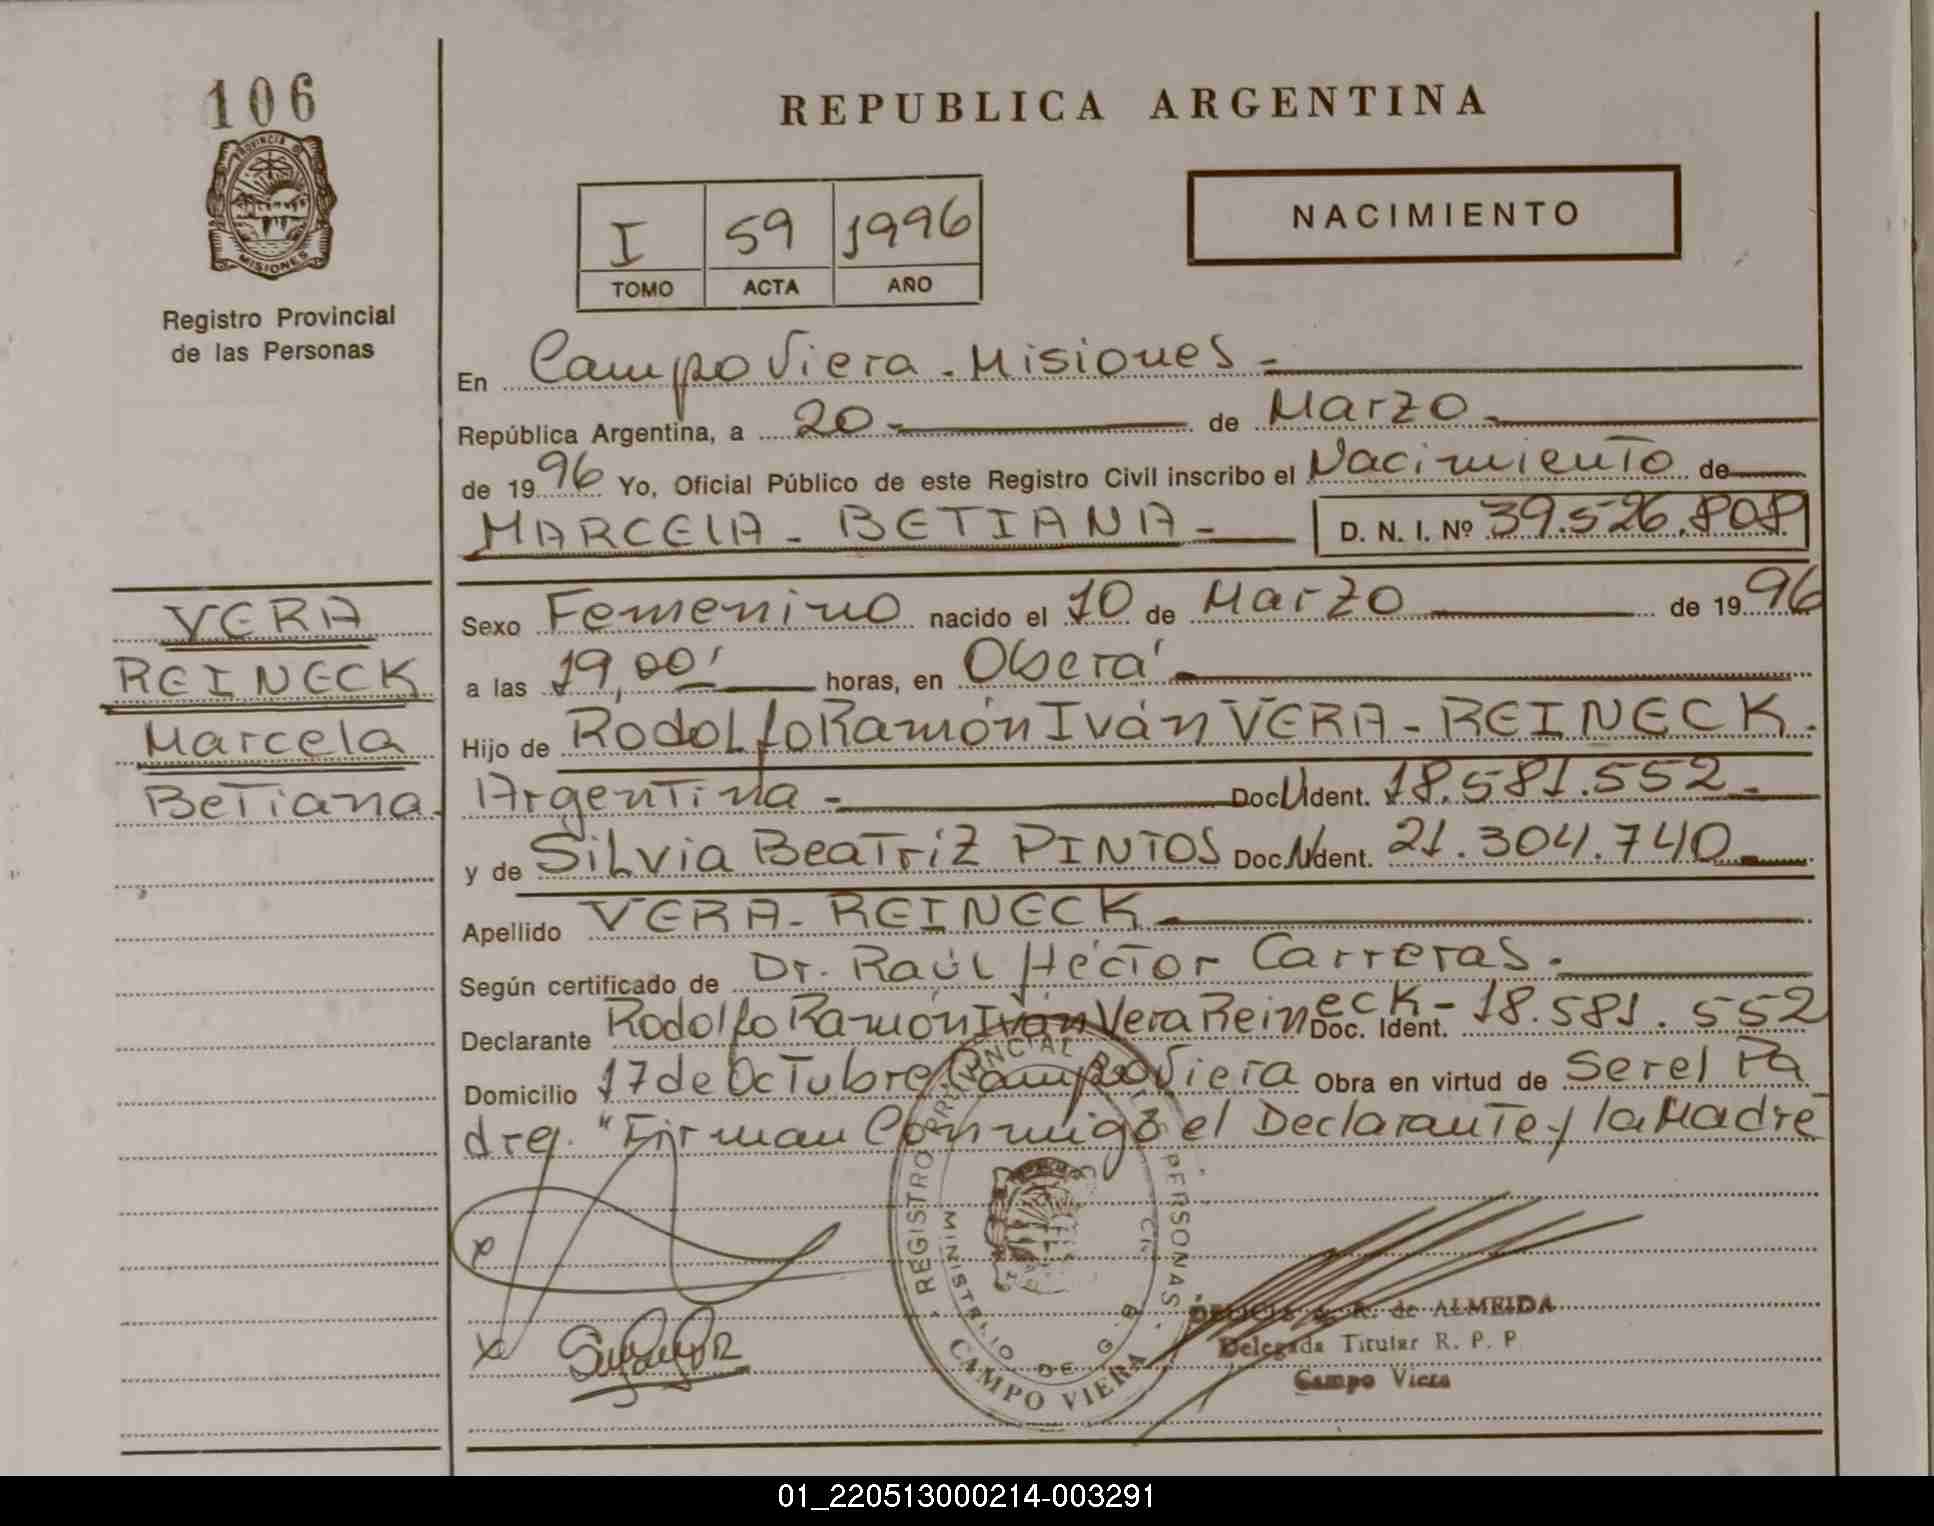 106
PROVINCIA DE
MISIONES
Registro Provincial
de las Personas
REPUBLICA ARGENTINA
I 59 1996
TOMO ACTA AÑO
NACIMIENTO
En Campo Viera - Misiones -
República Argentina, a 20 - de Marzo -
de 1996 Yo, Oficial Público de este Registro Civil inscribo el Nacimiento de
MARCELA - BETIANA - D. N. I. Nº 39.526.808
VERA
REINECK
Marcela
Betiana.
Sexo Femenino nacido el 10 de Marzo de 1996
a las 19,00' horas, en Oberá -
Hijo de Rodolfo Ramón Iván VERA - REINECK.
Argentina - Doc. Ident. 18.581.552 -
y de Silvia Beatriz PINTOS Doc. Ident. 21.304.740 -
Apellido VERA - REINECK -
Según certificado de Dr. Raúl Héctor Carreras. -
Declarante Rodolfo Ramón Iván Vera Reineck - Doc. Ident. 18.581.552
Domicilio 17 de Octubre Campo Viera Obra en virtud de Ser el Pa
dre. "Firman Conmigo el Declarante y la Madre
REGISTRO PROVINCIAL PERSONAS
MINISTERIO DE G.
CAMPO VIERA
R. de ALMEIDA
Delegada Titular R. P. P.
Campo Viera
01_220513000214-003291